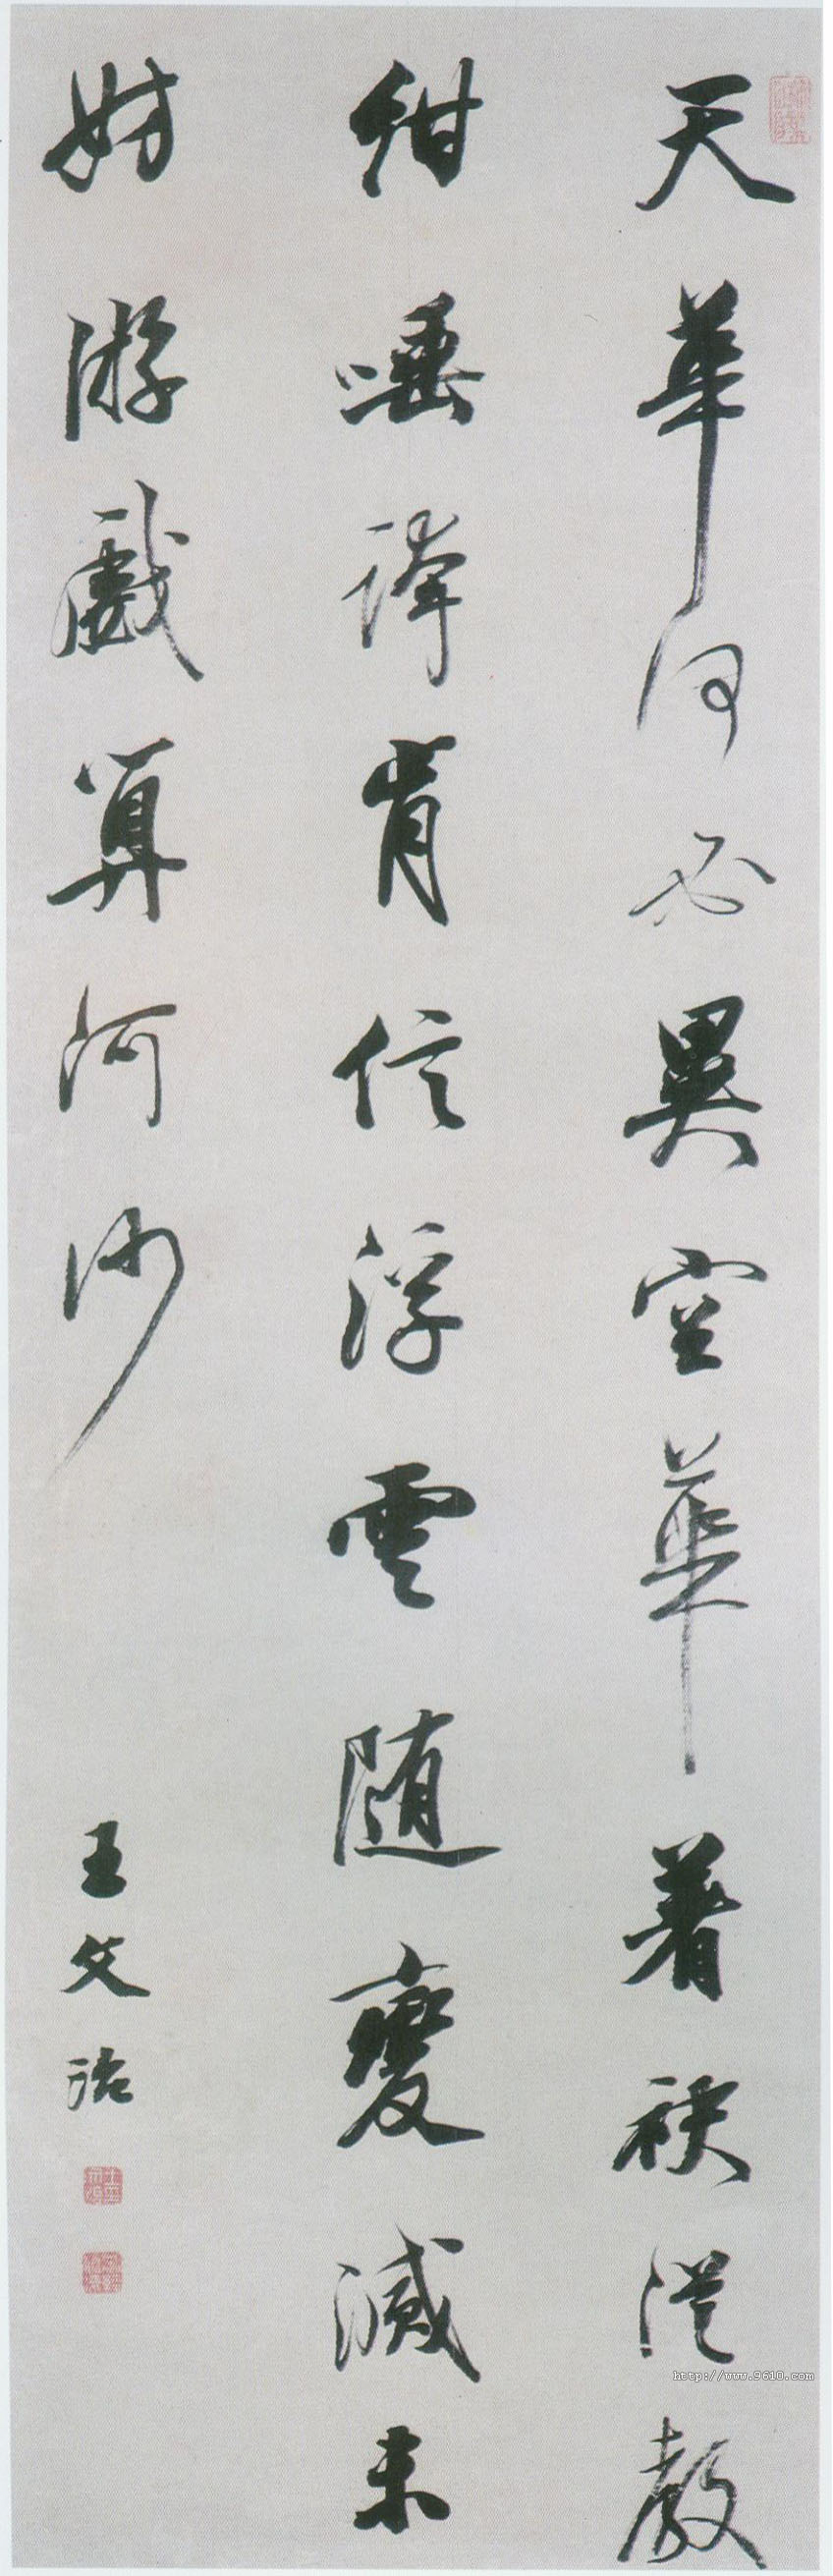 天華何必異空華著袂從教
紺唾譁肯信浮雲随變滅未
妨游戲算河沙
王文治
http://www.9610.com